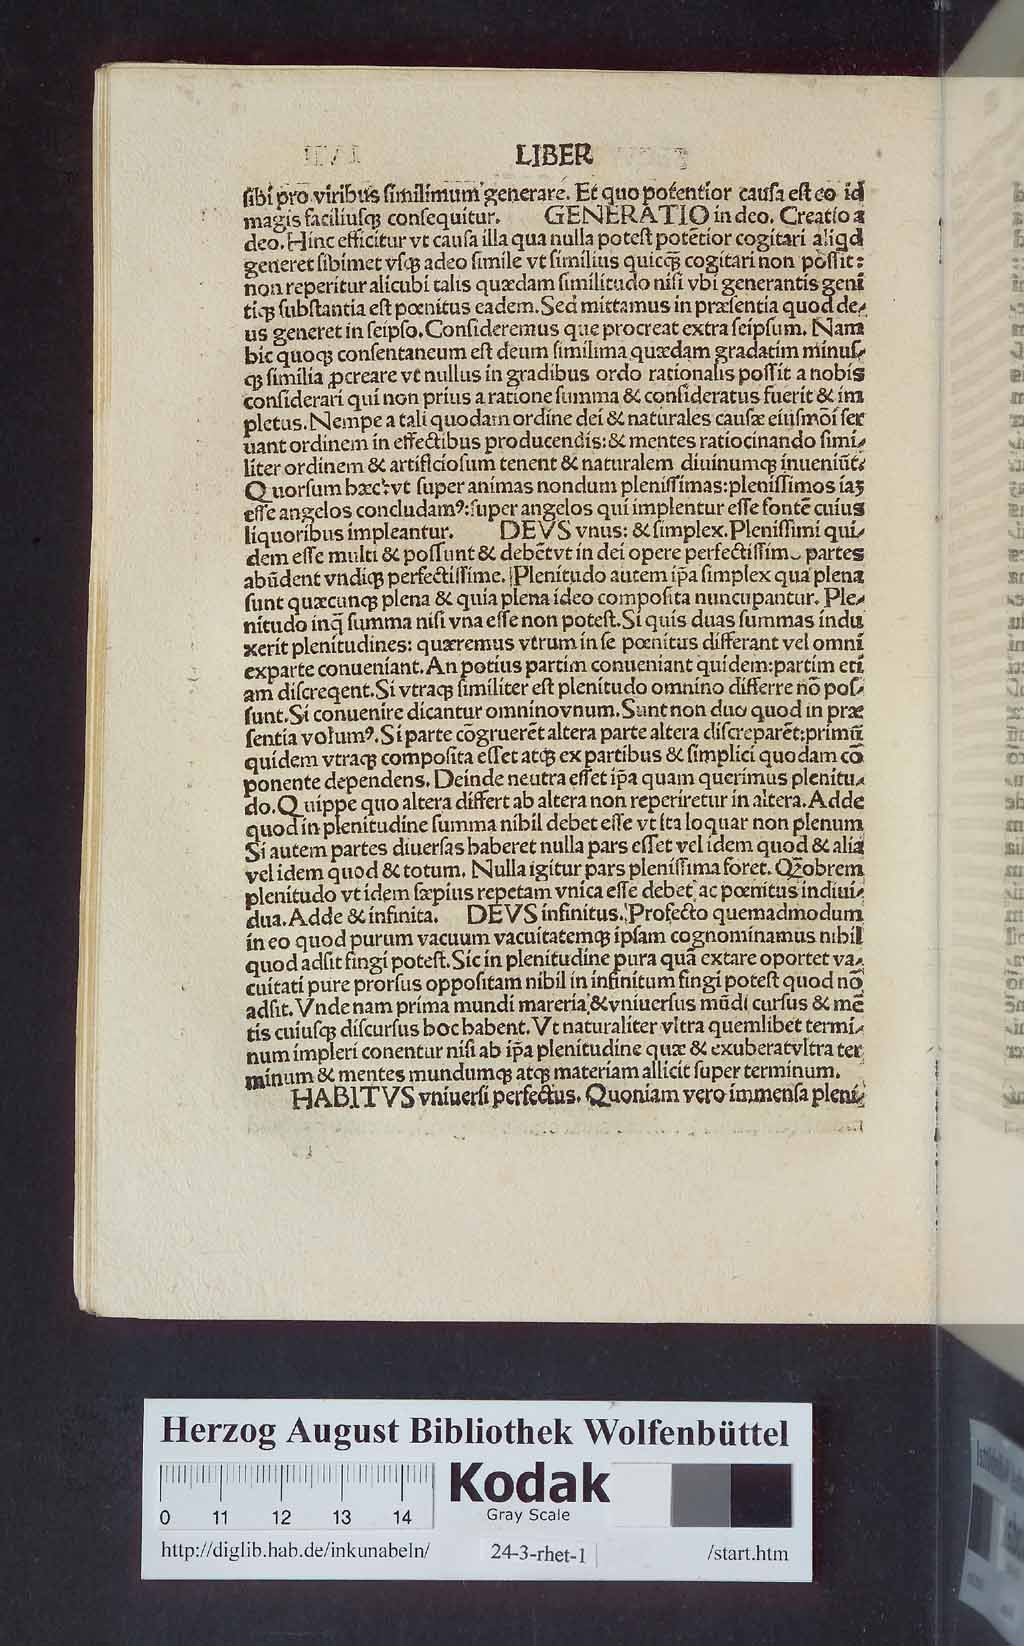 LIBER
sibi pro viribus similimum generare. Et quo potentior causa est eo id
magis faciliusqꝫ consequitur. GENERATIO in deo. Creatio a
deo. Hinc efficitur vt causa illa qua nulla potest potētior cogitari aliqd
generet sibimet vsqꝫ adeo simile vt similius quicqꝫ cogitari non possit:
non reperitur alicubi talis quædam similitudo nisi vbi generantis geni
tiqꝫ substantia est pœnitus eadem. Sed mittamus in præsentia quod de⸗
us generet in seipso. Consideremus que procreat extra seipsum. Nam
hic quoqꝫ consentaneum est deum similima quædam gradatim minus⸗
qꝫ similia ꝓcreare vt nullus in gradibus ordo rationalis possit a nobis
considerari qui non prius a ratione summa & consideratus fuerit & im
pletus. Nempe a tali quodam ordine dei & naturales causæ eiusmōi ser
uant ordinem in effectibus producendis: & mentes ratiocinando simi⸗
liter ordinem & artificiosum tenent & naturalem diuinumqꝫ inueniūt.
Quorsum hæc? vt super animas nondum plenissimas: plenissimos iaꝫ
esse angelos concludamꝰ: super angelos qui implentur esse fontē cuius
liquoribus impleantur. DEVS vnus: & simplex. Plenissimi qui⸗
dem esse multi & possunt & debēt vt in dei opere perfectissimo partes
abūdent vndiqꝫ perfectissime. Plenitudo autem ip̄a simplex qua plena
sunt quæcunqꝫ plena & quia plena ideo composita nuncupantur. Ple⸗
nitudo inq̄ summa nisi vna esse non potest. Si quis duas summas indu
xerit plenitudines: quæremus vtrum in se pœnitus differant vel omni
exparte conueniant. An potius partim conueniant quidem: partim eti
am discreqent. Si vtraqꝫ similiter est plenitudo omnino differre nō pos⸗
sunt. Si conuenire dicantur omninovnum. Sunt non duo quod in præ
sentia volumꝰ. Si parte cōgruerēt altera parte altera discreparēt: primū
quidem vtraqꝫ composita esset atqꝫ ex partibus & simplici quodam cō
ponente dependens. Deinde neutra esset ip̄a quam querimus plenitu⸗
do. Quippe quo altera differt ab altera non reperiretur in altera. Adde
quod in plenitudine summa nihil debet esse vt ita loquar non plenum
Si autem partes diuersas haberet nulla pars esset vel idem quod & alia
vel idem quod & totum. Nulla igitur pars plenissima foret. Qꝫobrem
plenitudo vt idem sæpius repetam vnica esse debet ac pœnitus indiui⸗
dua. Adde & infinita. DEVS infinitus. Profecto quemadmodum
in eo quod purum vacuum vacuitatemqꝫ ipsam cognominamus nihil
quod adsit fingi potest. Sic in plenitudine pura quā extare oportet va⸗
cuitati pure prorsus oppositam nihil in infinitum fingi potest quod nō
adsit. Vnde nam prima mundi mareria & vniuersus mūdi cursus & mē
tis cuiusqꝫ discursus hoc habent. Vt naturaliter vltra quemlibet termi⸗
num impleri conentur nisi ab ip̄a plenitudine quæ & exuberatvltra ter
minum & mentes mundumqꝫ atqꝫ materiam allicit super terminum.
HABITVS vniuersi perfectus. Quoniam vero immensa pleni⸗
Herzog August Bibliothek Wolfenbüttel
Kodak
Gray Scale
0 11 12 13 14
http://diglib.hab.de/inkunabeln/ 24-3-rhet-1 /start.htm